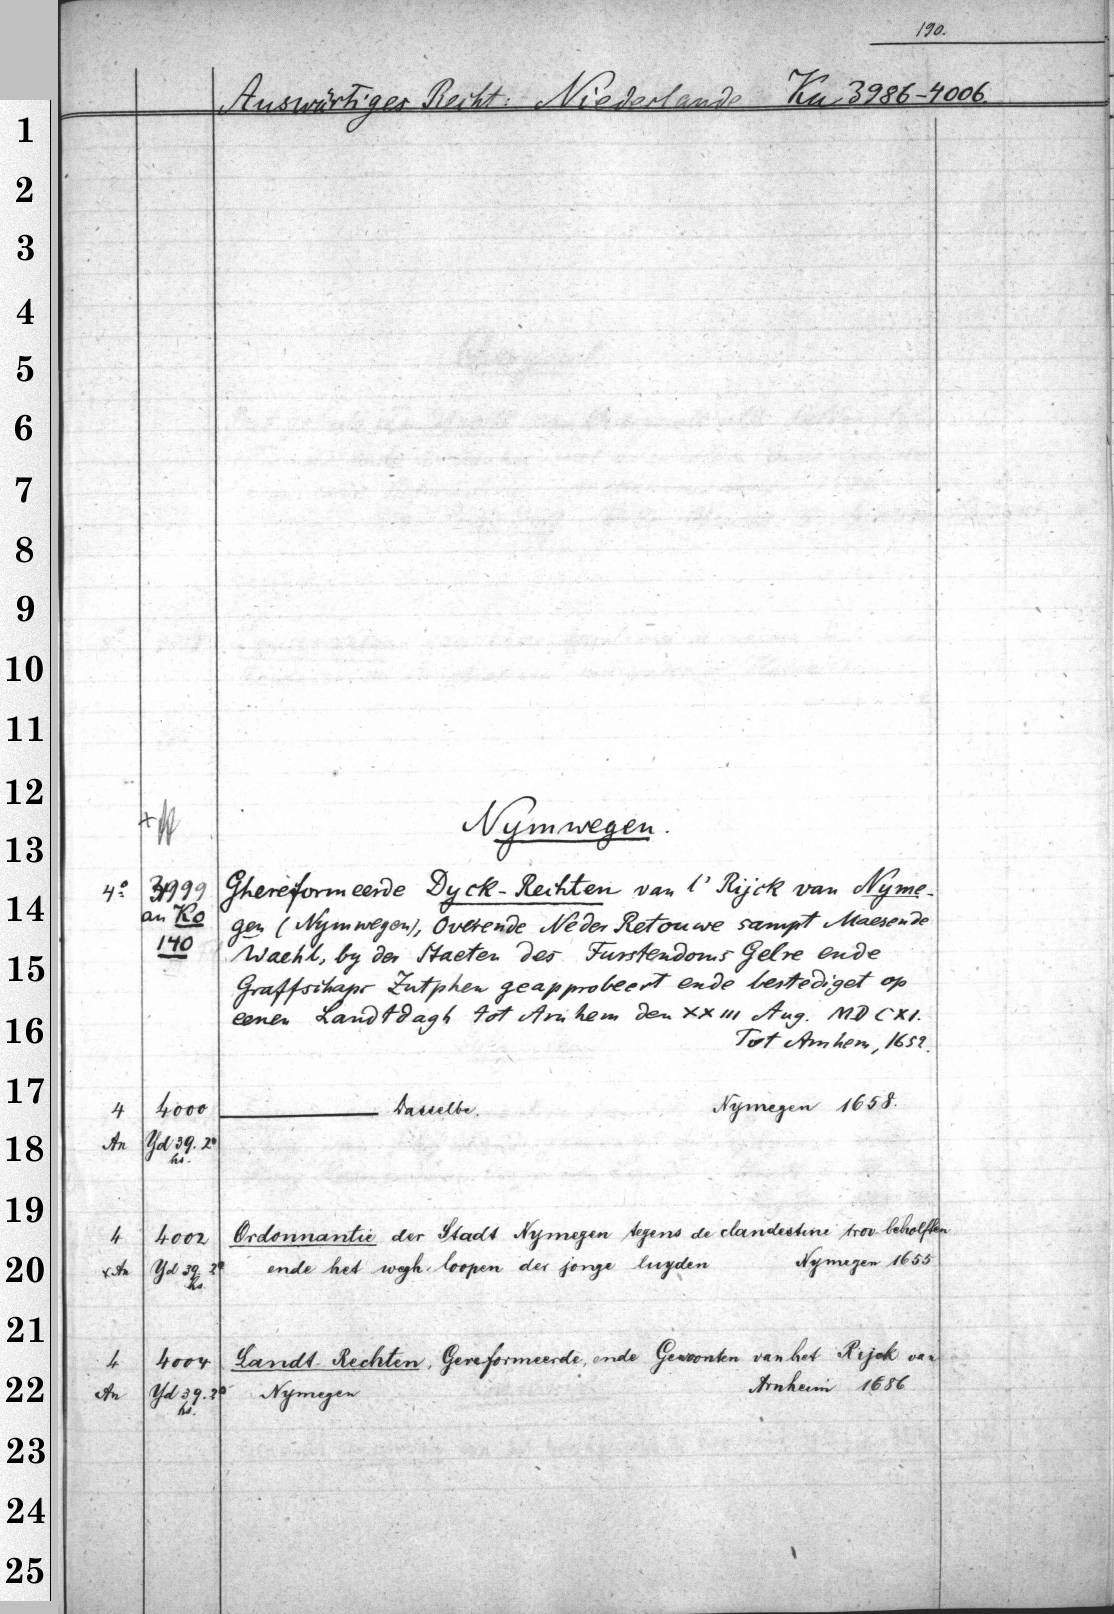 190.
Auswärtiges Recht: Niederlande Ku 3986-4006.
1
2
3
4
5
6
7
8
9
10
11
12
13
14
15
16
17
18
19
20
21
22
23
24
25
Nymwegen.
4° 3999 Ghereformeerde Dyck-Rechten van t' Rijck van Nyme-
an Ko gen (Nymwegen), Overende Neder Retouwe sampt Maesende
140 Waehl, by der Staeten des Furstendoms Gelre ende
Graffschaps Zutphen geapprobeert ende bestediget op
eenen Landtdagh tot Arnhem den XXIII Aug. MDCXI.
Tot Arnhem, 1652.
4 4000 Dasselbe. Nymegen 1658.
An Yd 39. 2°
hs.
4 4002 Ordonnantie der Stadt Nymegen tegens de clandestine trov-beholften
x An Yd 39. 2° ende het wegh-loopen der jonge luyden Nymegen 1655
hs.
4 4004 Landt-Rechten, Gereformeerde, ende Gewoonten van het Rijck van
An Yd 39. 2° Nymegen Arnheim 1686
hs.